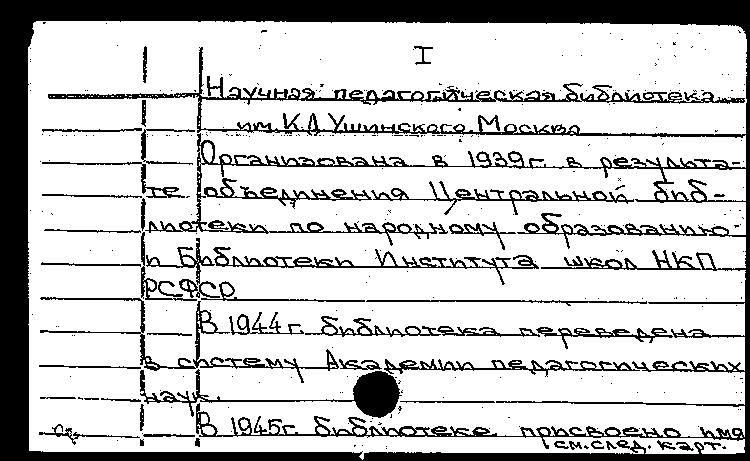 I
Научная педагогическая библиотека
им. К.Д. Ушинского. Москва
Организована в 1939г. в результа-
те объединения Центральной биб-
лиотеки по народному образованию
и Библиотеки Института школ НКП
РСФСР.
В 1944 г. библиотека переведена
в систему Академии педагогических
наук.
В 1945г. библиотеке присвоено имя
см. след. карт.